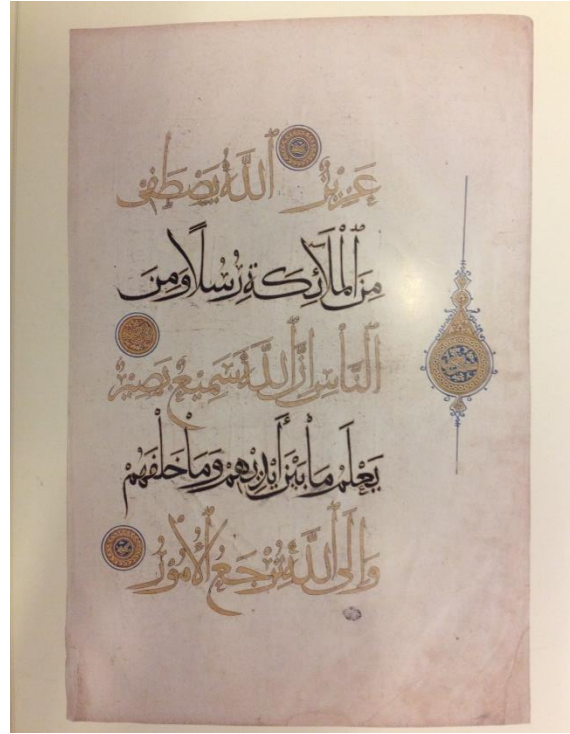 عَزِيزٌ ٱللَّهُ يَصْطَفِى
مِنَ ٱلْمَلَٰٓئِكَةِ رُسُلًا وَمِنَ
ٱلنَّاسِ إِنَّ ٱللَّهَ سَمِيعٌ بَصِيرٌ
يَعْلَمُ مَا بَيْنَ أَيْدِيهِمْ وَمَا خَلْفَهُمْ
وَإِلَى ٱللَّهِ تُرْجَعُ ٱلْأُمُورُ